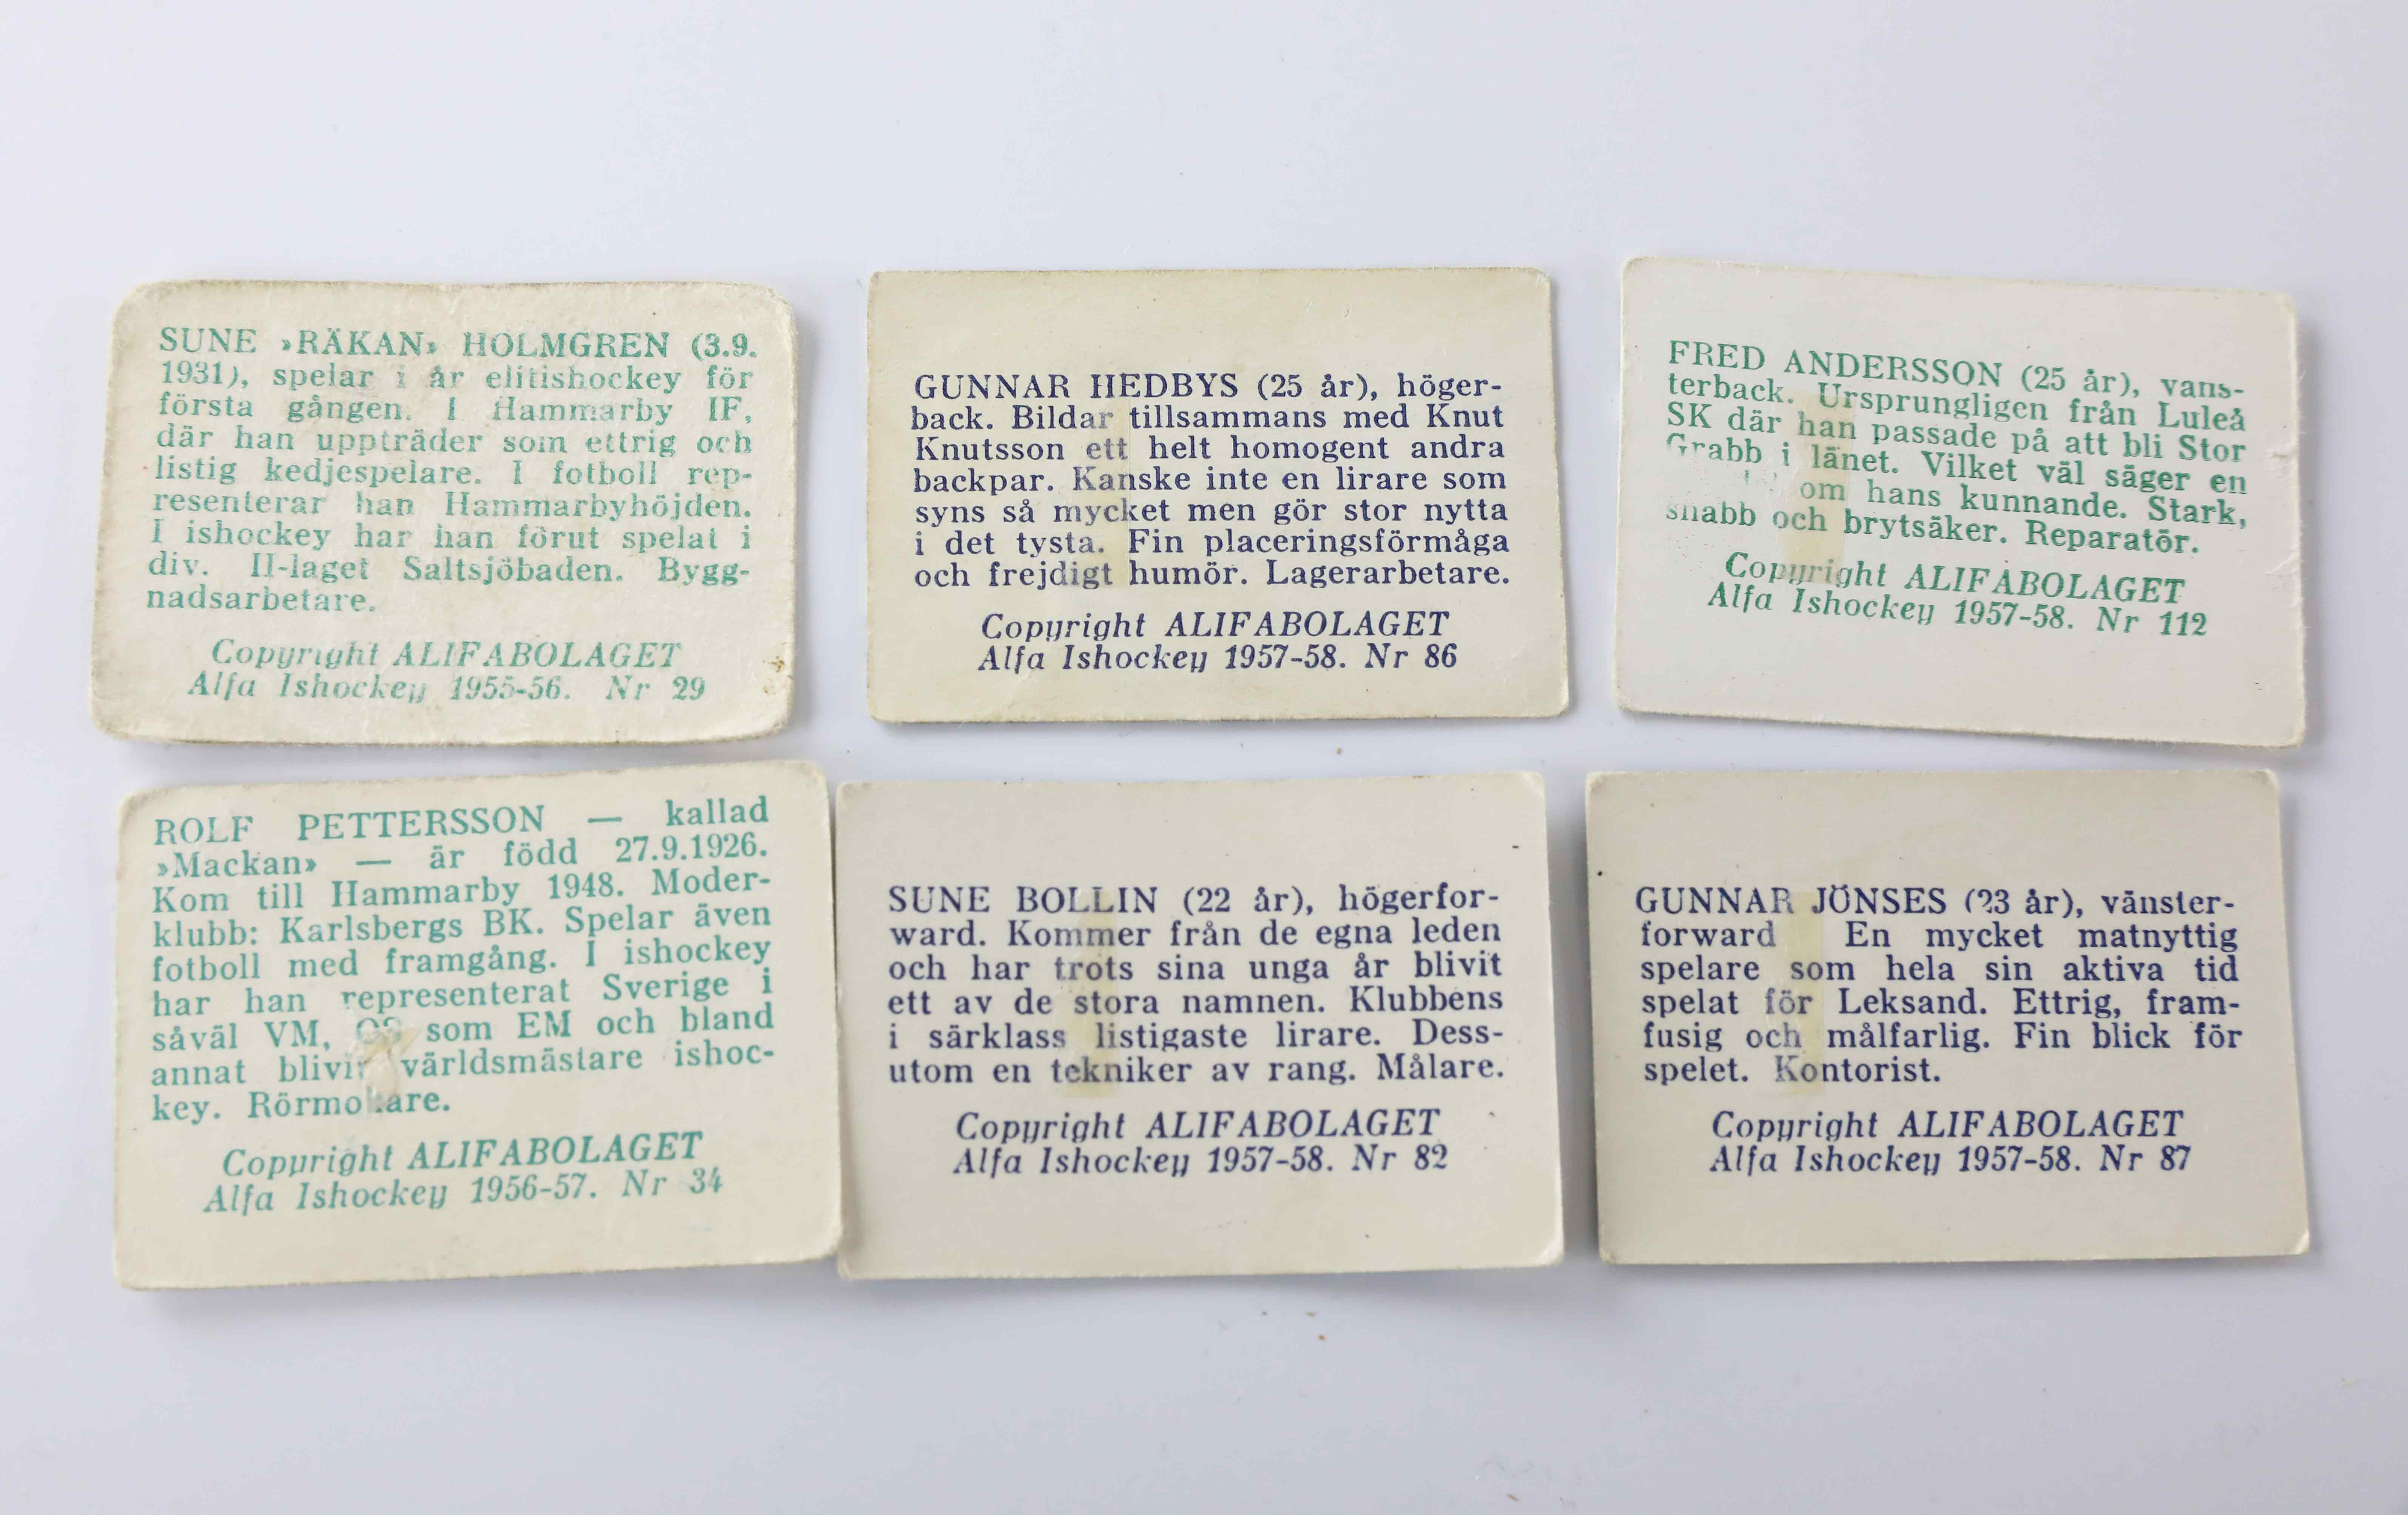 SUNE »RÄKAN» HOLMGREN (3.9.
1931), spelar i år elitishockey för
första gången. I Hammarby IF,
där han uppträder som ettrig och
listig kedjespelare. I fotboll rep-
resenterar han Hammarbyhöjden.
I ishockey har han förut spelat i
div. II-laget Saltsjöbaden. Bygg-
nadsarbetare.
Copyright ALIFABOLAGET
Alfa Ishockey 1955-56. Nr 29
GUNNAR HEDBYS (25 år), höger-
back. Bildar tillsammans med Knut
Knutsson ett helt homogent andra
backpar. Kanske inte en lirare som
syns så mycket men gör stor nytta
i det tysta. Fin placeringsförmåga
och frejdigt humör. Lagerarbetare.
Copyright ALIFABOLAGET
Alfa Ishockey 1957-58. Nr 86
FRED ANDERSSON (25 år), väns-
terback. Ursprungligen från Luleå
SK där han passade på att bli Stor
Grabb i länet. Vilket väl säger en
om hans kunnande. Stark,
snabb och brytsäker. Reparatör.
Copyright ALIFABOLAGET
Alfa Ishockey 1957-58. Nr 112
ROLF PETTERSSON — kallad
»Mackan» — är född 27.9.1926.
Kom till Hammarby 1948. Moder-
klubb: Karlsbergs BK. Spelar även
fotboll med framgång. I ishockey
har han representerat Sverige i
såväl VM, OS som EM och bland
annat blivit världsmästare ishoc-
key. Rörmokare.
Copyright ALIFABOLAGET
Alfa Ishockey 1956-57. Nr 34
SUNE BOLLIN (22 år), högerfor-
ward. Kommer från de egna leden
och har trots sina unga år blivit
ett av de stora namnen. Klubbens
i särklass listigaste lirare. Dess-
utom en tekniker av rang. Målare.
Copyright ALIFABOLAGET
Alfa Ishockey 1957-58. Nr 82
GUNNAR JÖNSES (23 år), vänster-
forward En mycket matnyttig
spelare som hela sin aktiva tid
spelat för Leksand. Ettrig, fram-
fusig och målfarlig. Fin blick för
spelet. Kontorist.
Copyright ALIFABOLAGET
Alfa Ishockey 1957-58. Nr 87